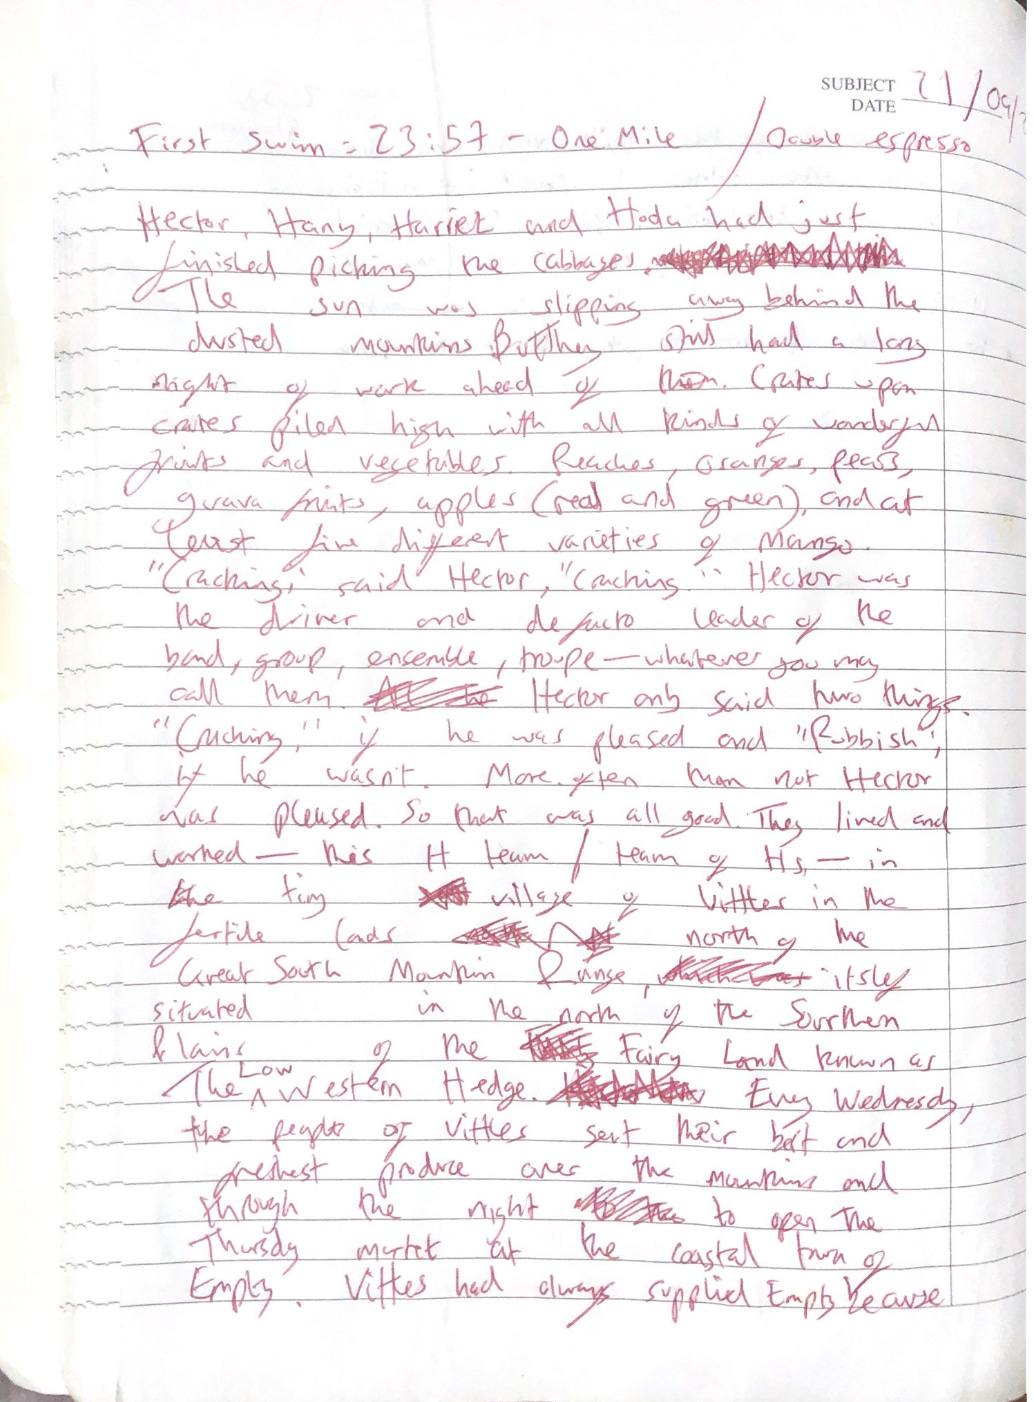 SUBJECT
DATE 21/09/
First Swim = 23:57 - One Mile / Double espresso
Hector, Hany, Harriet and Hoda had just
finished picking the cabbages.
The sun was slipping away behind the
dusted mountains. But they still had a long
night of work ahead of them. Crates upon
crates piled high with all kinds of wonderful
fruits and vegetables. Peaches, oranges, pears,
guava fruits, apples (red and green), and at
least five different varieties of Mango.
"Cracking," said Hector, "Cracking." Hector was
the driver and defacto leader of the
band, group, ensemble, troupe — whatever you may
call them. Hector only said two things.
"Cracking," if he was pleased and "Rubbish",
if he wasn't. More often than not Hector
was pleased. So that was all good. They lived and
worked — this H team / team of Hs, — in
the tiny village of Vittles in the
fertile lands north of the
Great South Mountain Range, itself
situated in the north of the Southern
Plains of the Fairy Land known as
The Low Western Hedge. Every Wednesday,
the people of Vittles sent their best and
freshest produce over the mountains and
through the night to open the
Thursday market at the coastal town of
Empty. Vittles had always supplied Empty because